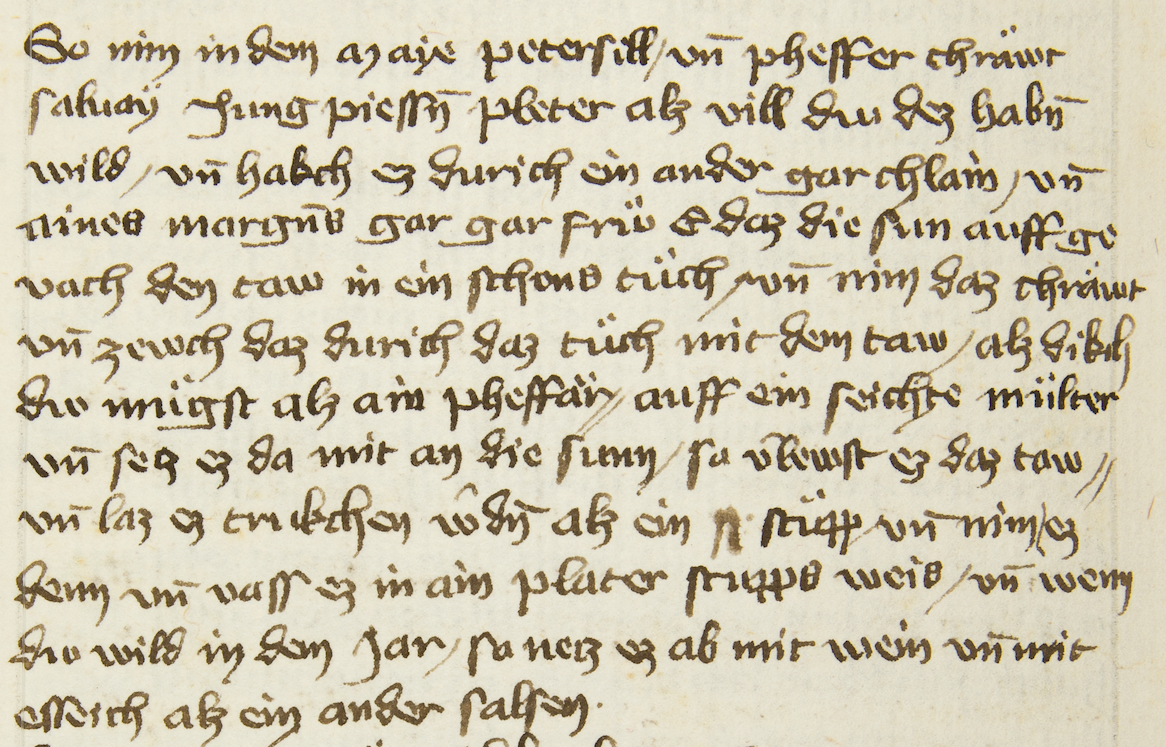 So nim in dem maye petersill / vn̄ pheffer chräwt
saluay Jung piessn̄ pleter alz vill dw dez habn̄
wild / vn̄ hakch ez durich ein ander gar chlain / vn̄
aines margn̄s gar gar frw̎ E daz die sun auff ge
vach den taw in ein schons tüch / vn̄ nim daz chräwt
vn̄ zewch daz durich daz tüch mit dem taw / alz dikch
dw mügst alz ain pheffär // auff ein seichte mülter
vn̄ secz ez da mit an die sunn / so v̄lewst ez daz taw //
vn̄ laz ez trukchen w̄dn̄ alz ein stüpp vn̄ nim / ez
denn vn̄ vass ez in ain plater stupps weis / vn̄ wenn
dw wild in dem Jar / so necz ez ab mit wein vn̄ mit
esseich alz ein ander salsen ·